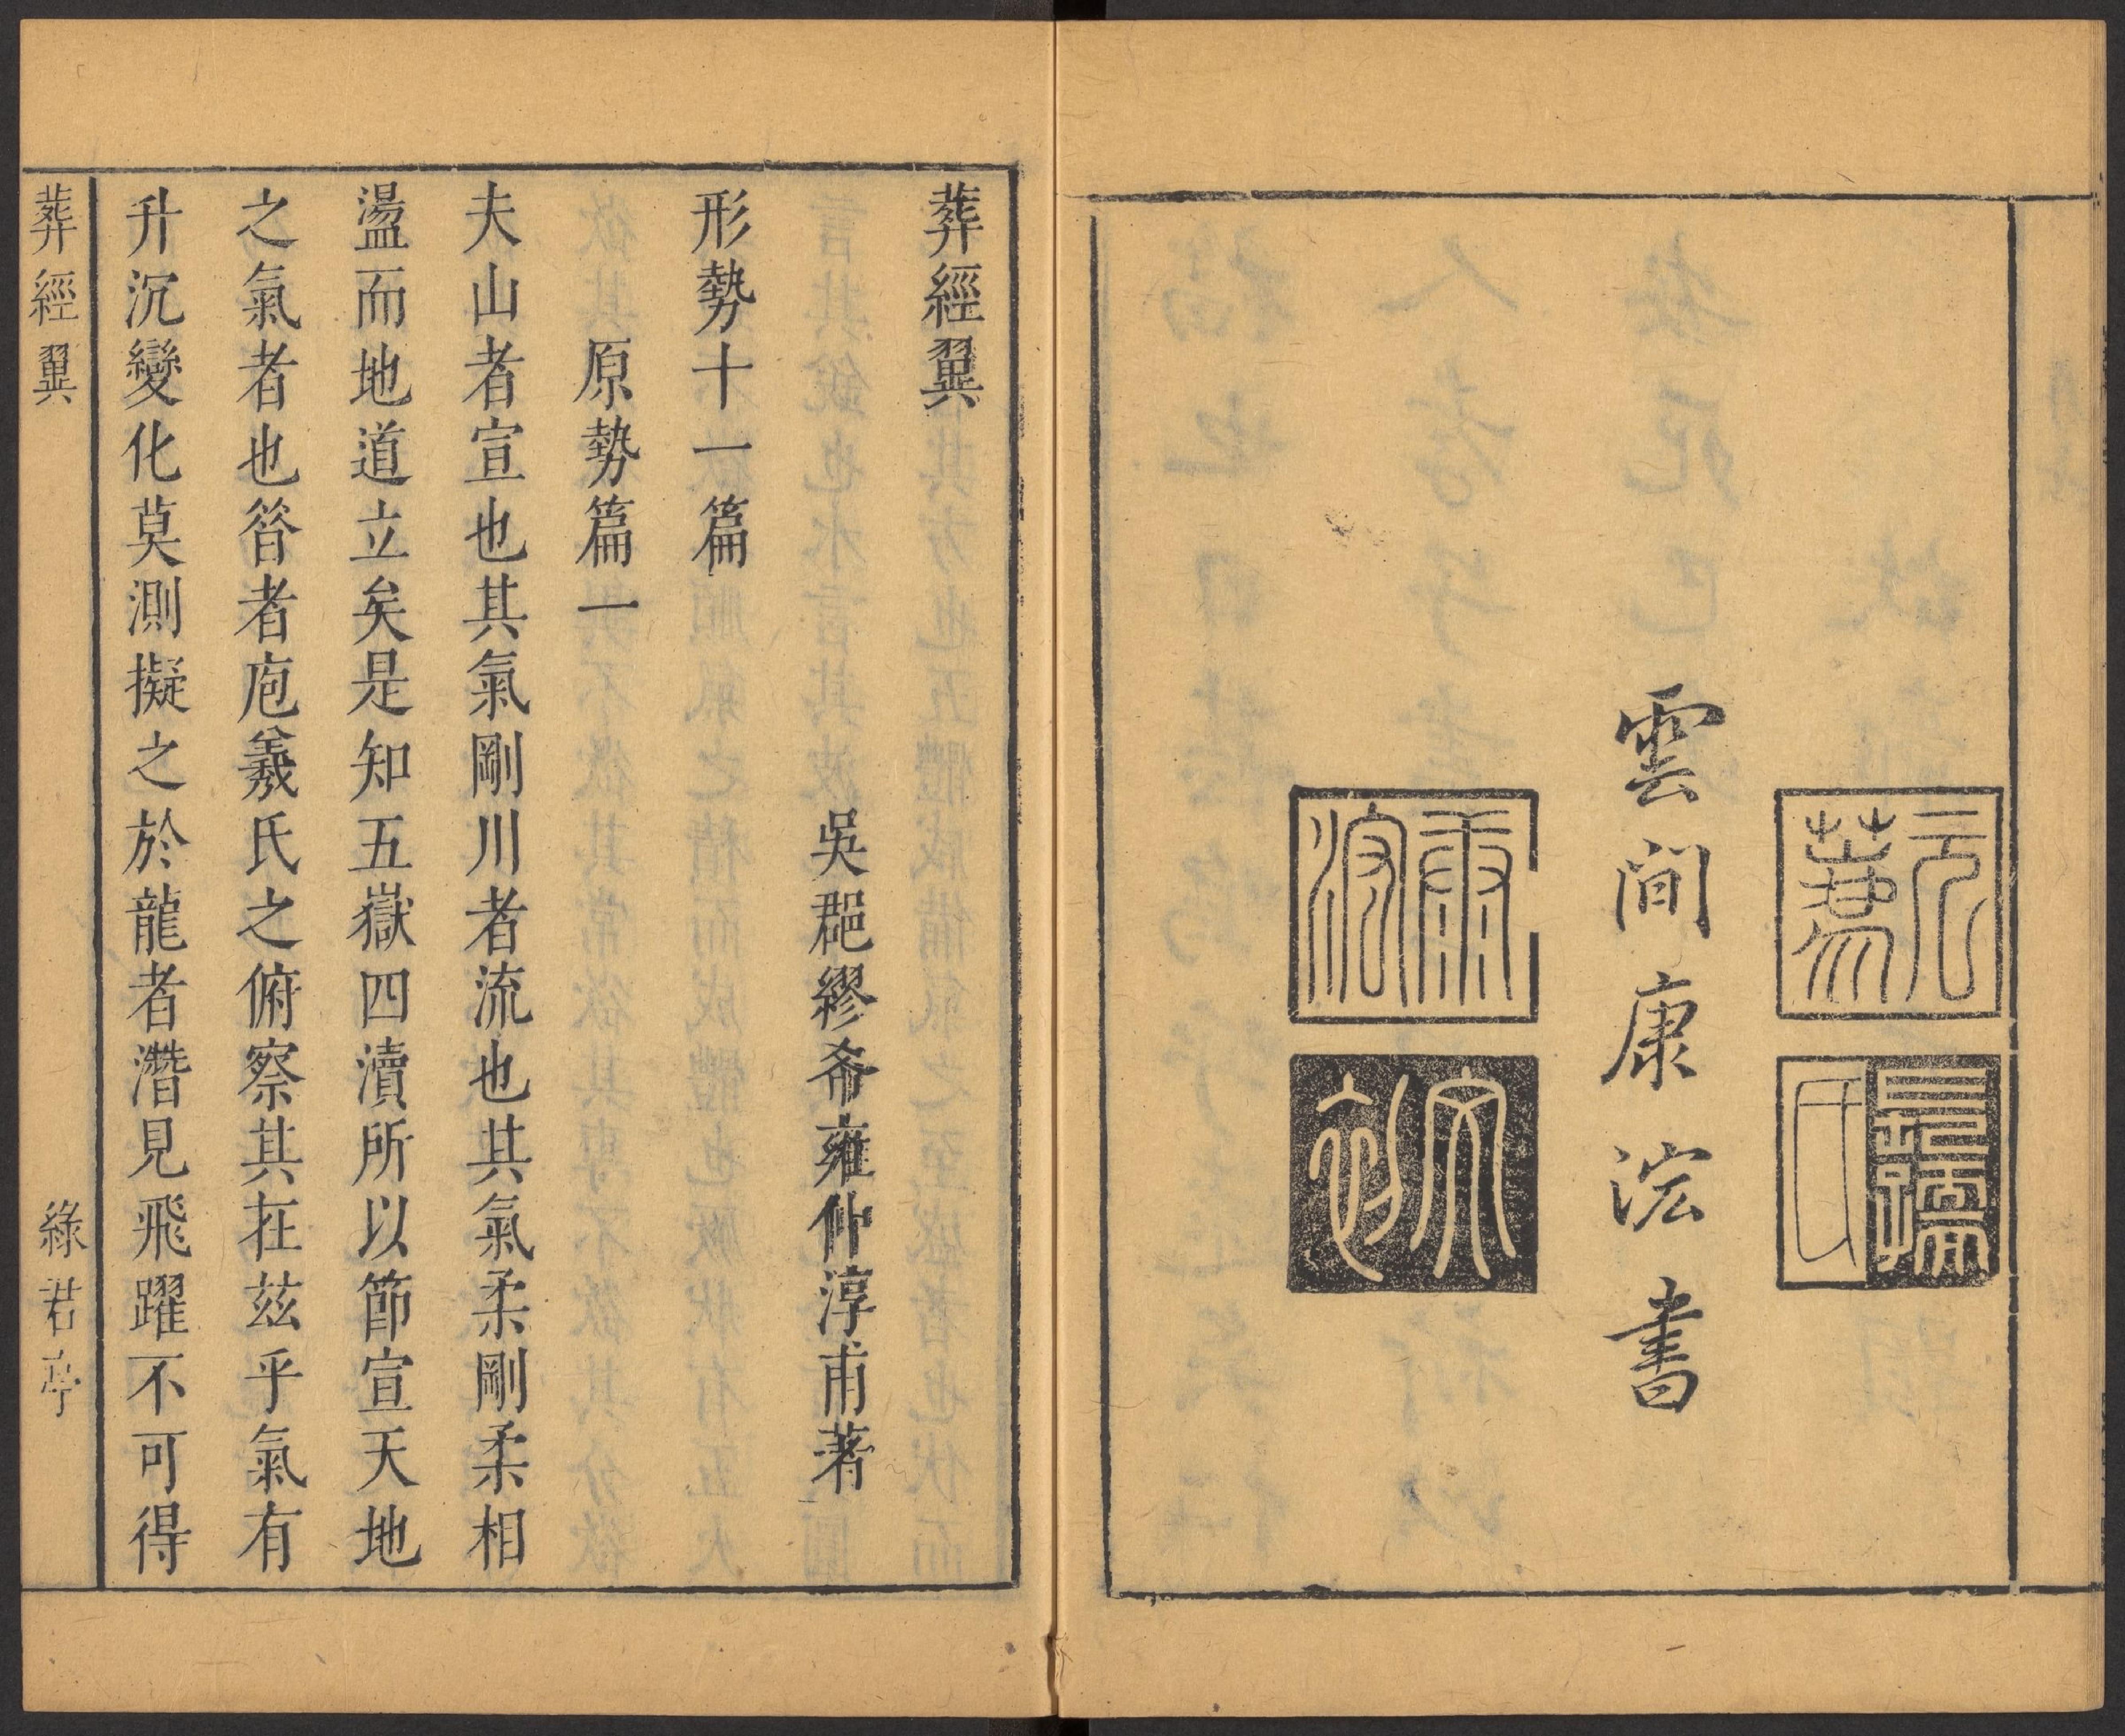 雲間康浤書
康浤
葬經翼
吳郡繆希雍仲淳甫著
形勢十一篇
原勢篇一
夫山者宣也其氣剛川者流也其氣柔剛柔相
盪而地道立矣是知五嶽四瀆所以節宣天地
之氣者也昝者庖羲氏之俯察其在茲乎氣有
升沉變化莫測擬之於龍者潛見飛躍不可得
葬經翼
綠君亭